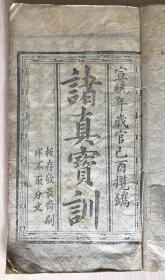 宣統年歲官己酉攪鐫
諸真寶訓
板存敬畏齋刷
印不取分文